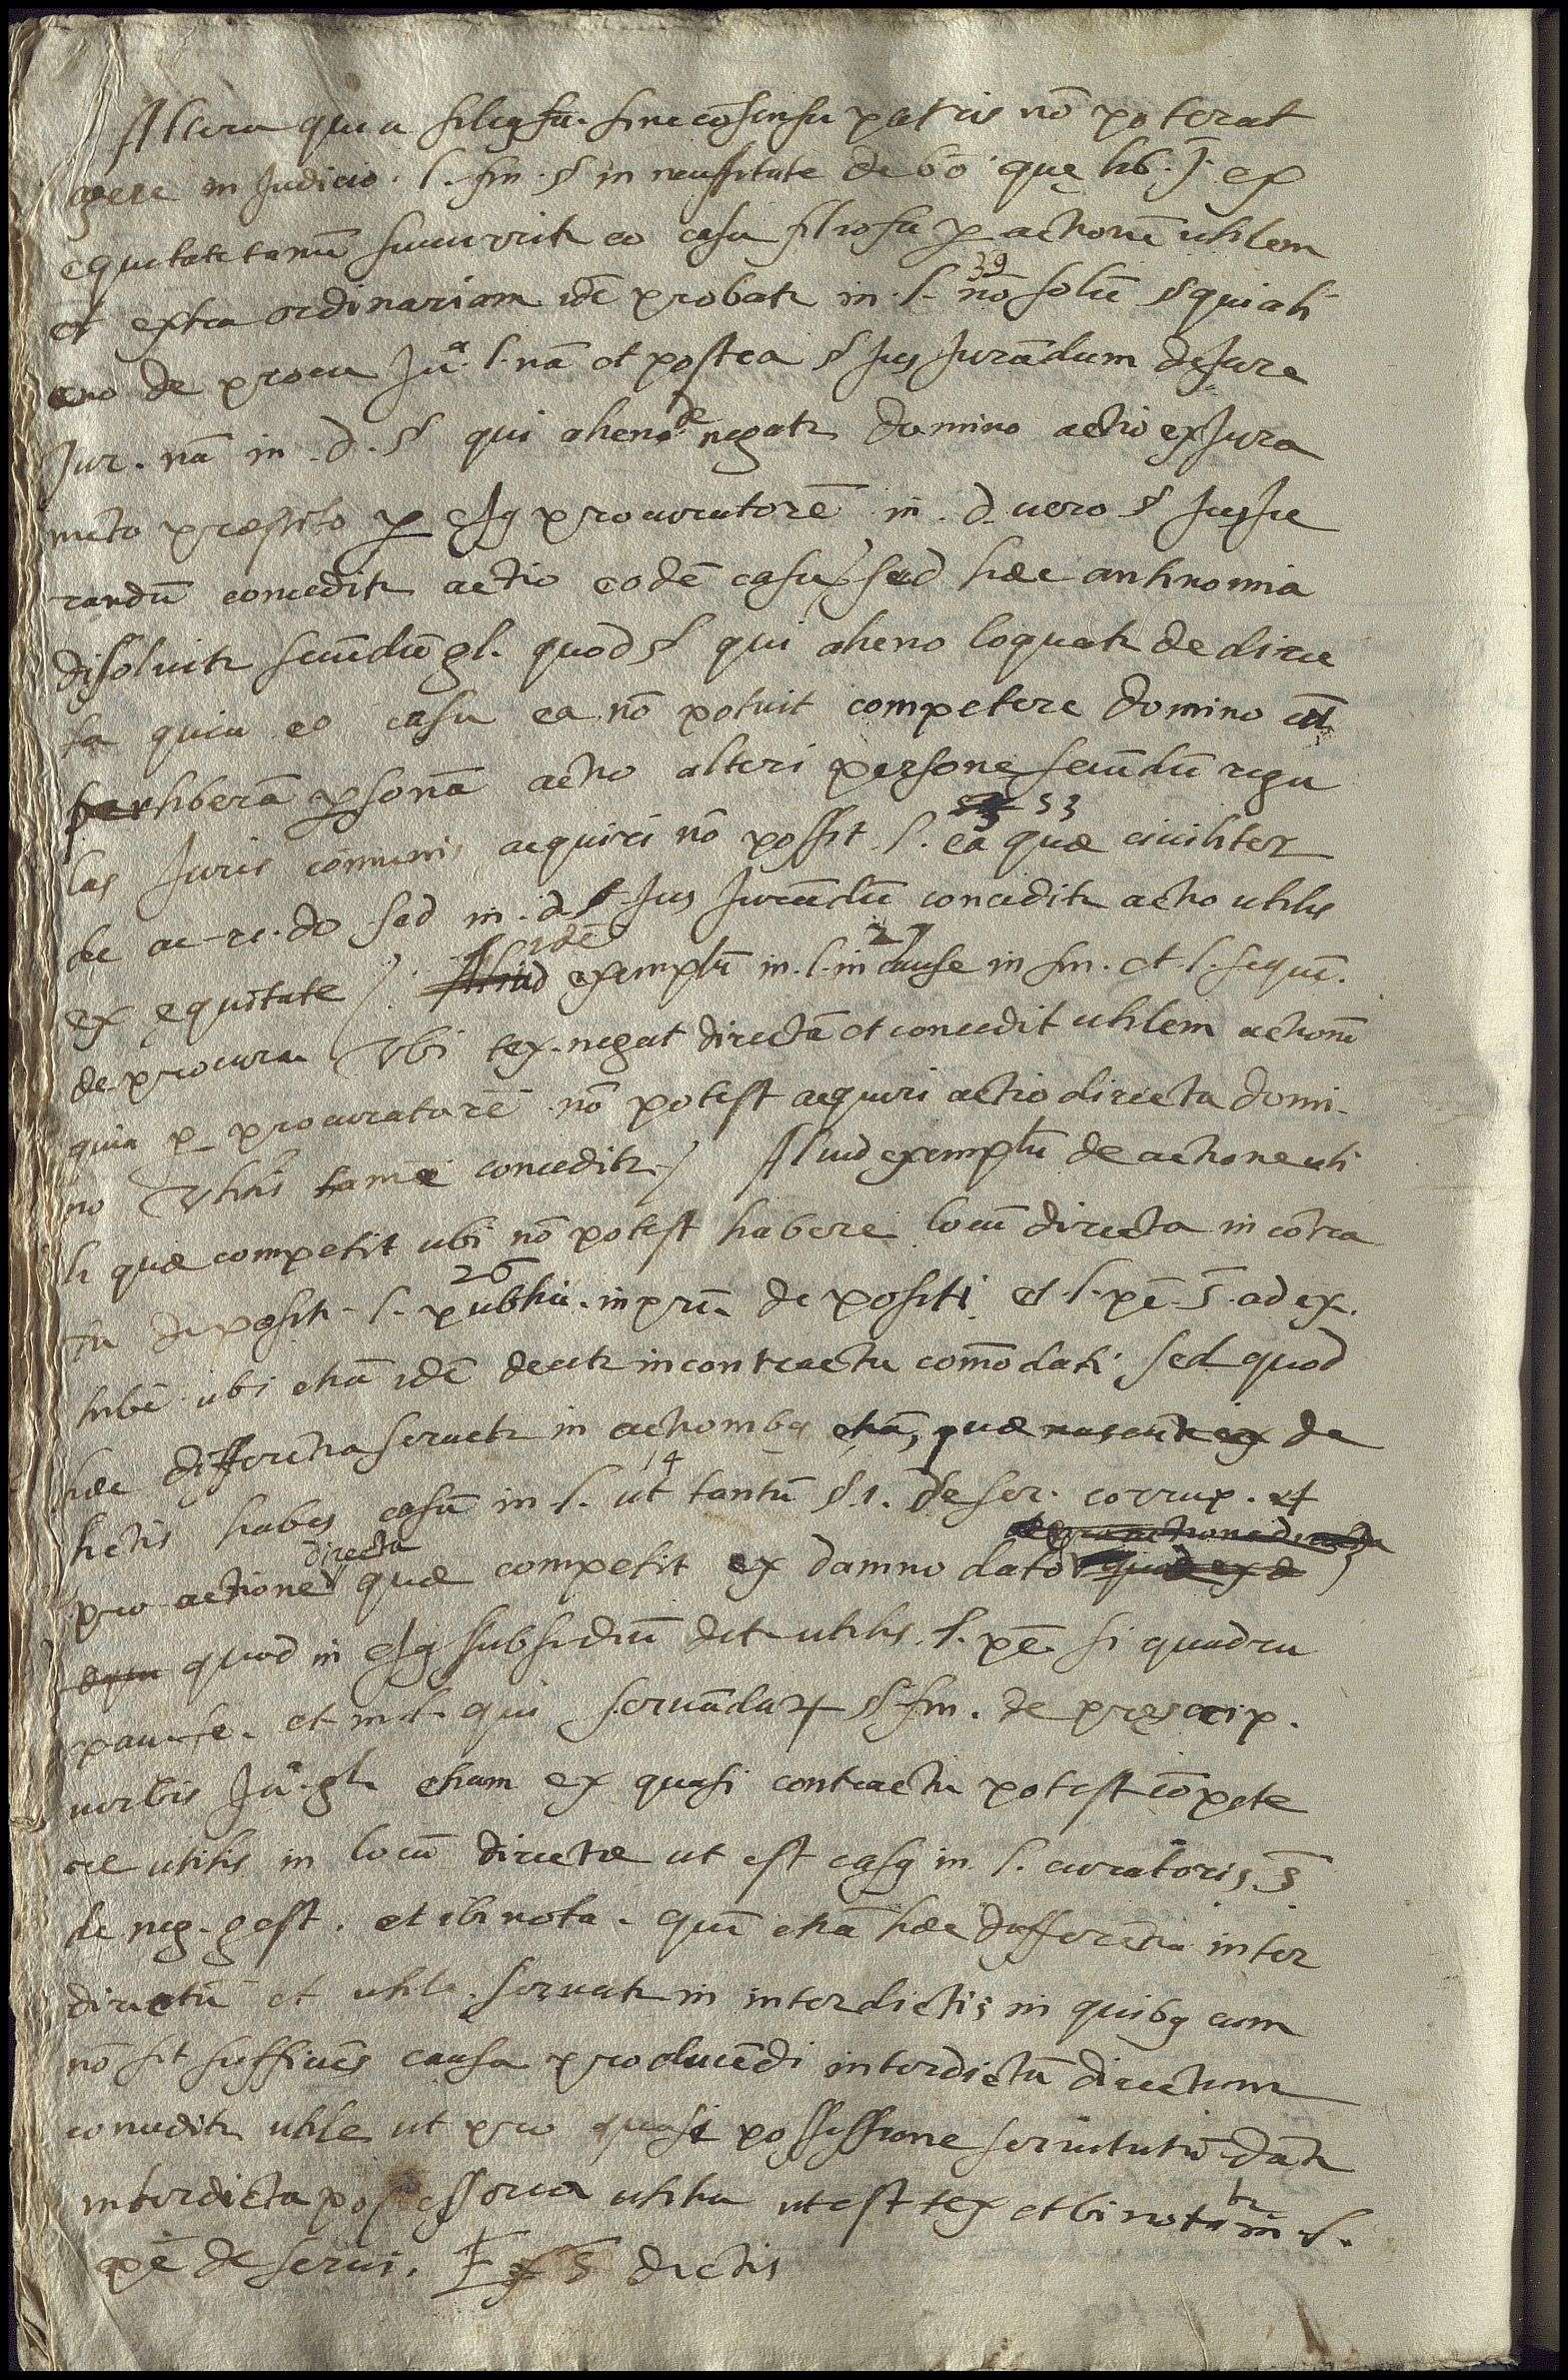 Altera quia filiqꝫ fa. sine cõsensu patris nõ poterat
agere in Judicio. l. fin. § in necessitate de bo. quę lib. J. ex
equitate tamē succurrit͛ eo casu filiofa ꝑ actionē utilem
et extra ordinariam idē probat͛ in l. nõ 39 solũ § qui ali
eno de procu Jũᵃ l. nã et postea § Jus Jurãdum de Jure
Jur. nã in .d. § qui alieno denegat͛ domino actio ex Jura
mẽto præstito ꝑ eiqꝫ procuratorē in .d. uero § Jusju
randũ conceditr actio eodē casu sed hæc antinomia
dissoluitr secũdũ gl. quod § qui alieno loquatr de direc
ta quia eo casu ea nõ potuit competere domino cũ
per liberã ꝑsonã actio alteri personę secũdũ regu
las Juris comunis acquiri nõ possit l. ea 53 quæ ciuiliter
de ac. re. do sed in .d. § Jus Jurãdũ conceditr actio utilis
ex equitate / Aliud idē exemplũ in l. in cause 27 in fin. et l. sequẽ.
de procura Vbi tex. negat directã et concedit utilem actionē
quia ꝑ procuratorē nõ potest acquiri actio directa domi-
no Vtilis tamē conceditr / Aliud exemplũ de actione uti
li quæ competit ubi nõ potest habere locũ directa in cõtra
tu depositi l. publia 26 in prĩ. depositi et l. pē. J. ad ex.
hibē ubi etiã idē dicitr in contractu comõdati sed quod
hæc differentia seruetr in actionibqꝫ etiã, quæ nascũtr ex de
lictis habes casũ in l. ut 14 tantũ §.1. de ser. corrup. et
pro actione directa quæ competit ex damno dato
quod in eiqꝫ subsidiũ detr utilis l. pē. si quadru
pau. fe. et in l. qui seruãdaꝝ § fin. de pręscrip.
uerbis Jũᵃ gl. etiam ex quasi contractu potest cõpete
re utilis in locũ directæ ut est casqꝫ in l. curatoris J
de neg. gest. et ibi nota. quĩ etiã hæc differẽtia inter
directũ et utile seruatr in interdictis in quibqꝫ cum
nõ sit sufficiẽs causa producẽdi interdictũ directum
conceditr utile ut pro quasi possessione seruitutũ dãtr
interdicta possessoria utilia ut est tex et ibi notatr in l.
pē de serui. Ex J dictis